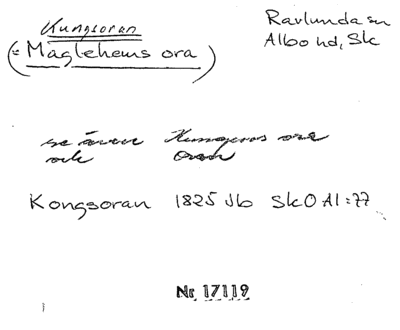 Kungsoran
(= Maglehems ora)
Ravlunda sn
Albo hd, Sk
se även Kungens ora
och Oran
Kongsoran 1825 Jb Sk O Al:77
Nr 17119